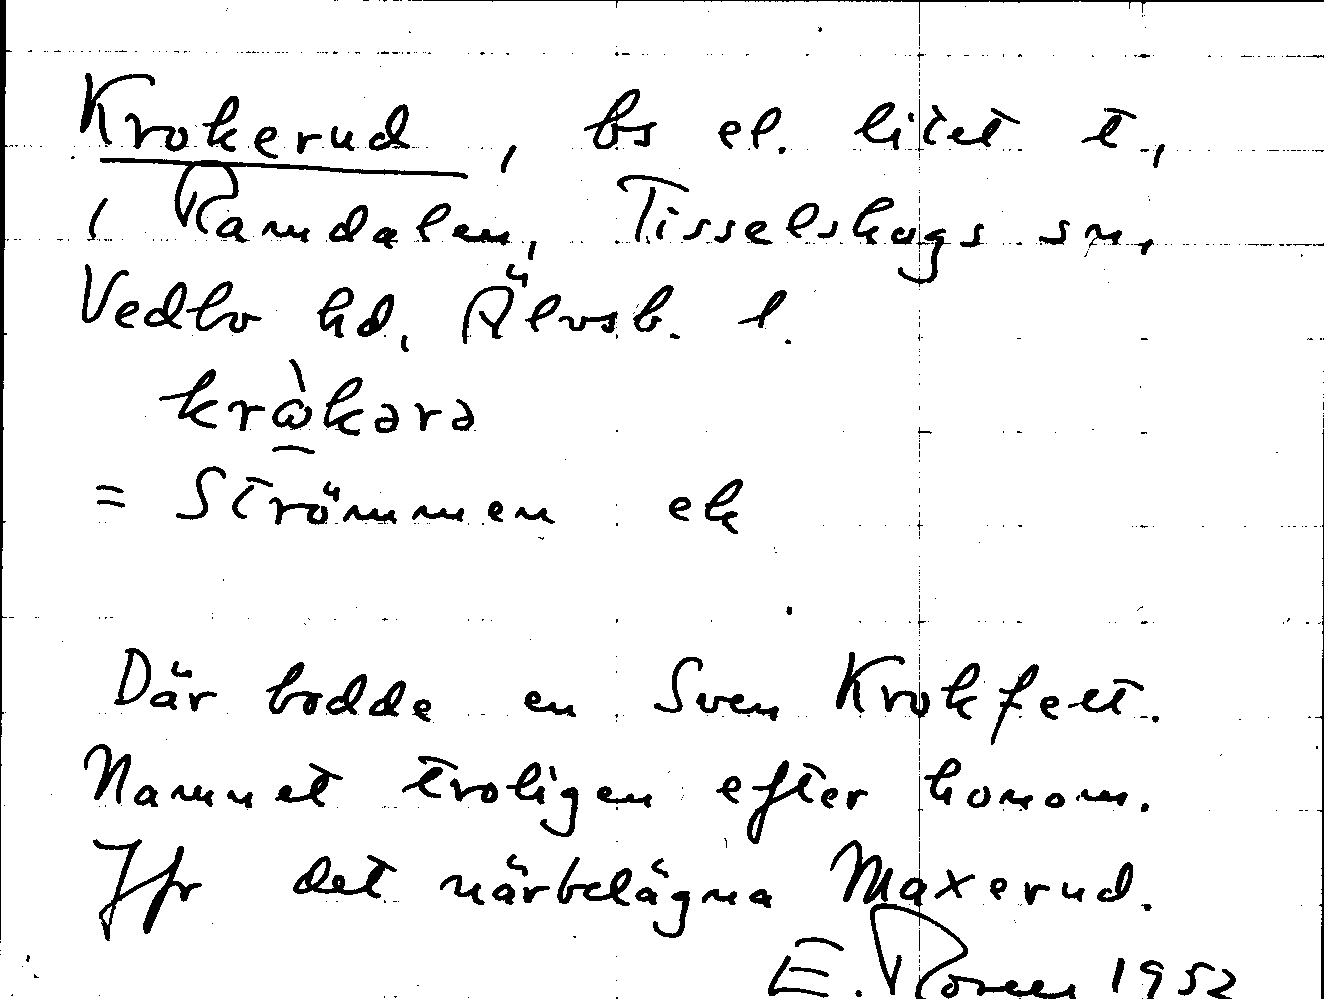 Krokerud, bs el. litet t.,
i Ramdalen, Tisselskogs sn,
Vedbo hd, Älvsb. l.
krὼkərə
= Strömmen ek
Där bodde en Sven Krokfelt.
Namnet troligen efter honom.
Jfr det närbelägna Maxerud.
E. Rosell 1952